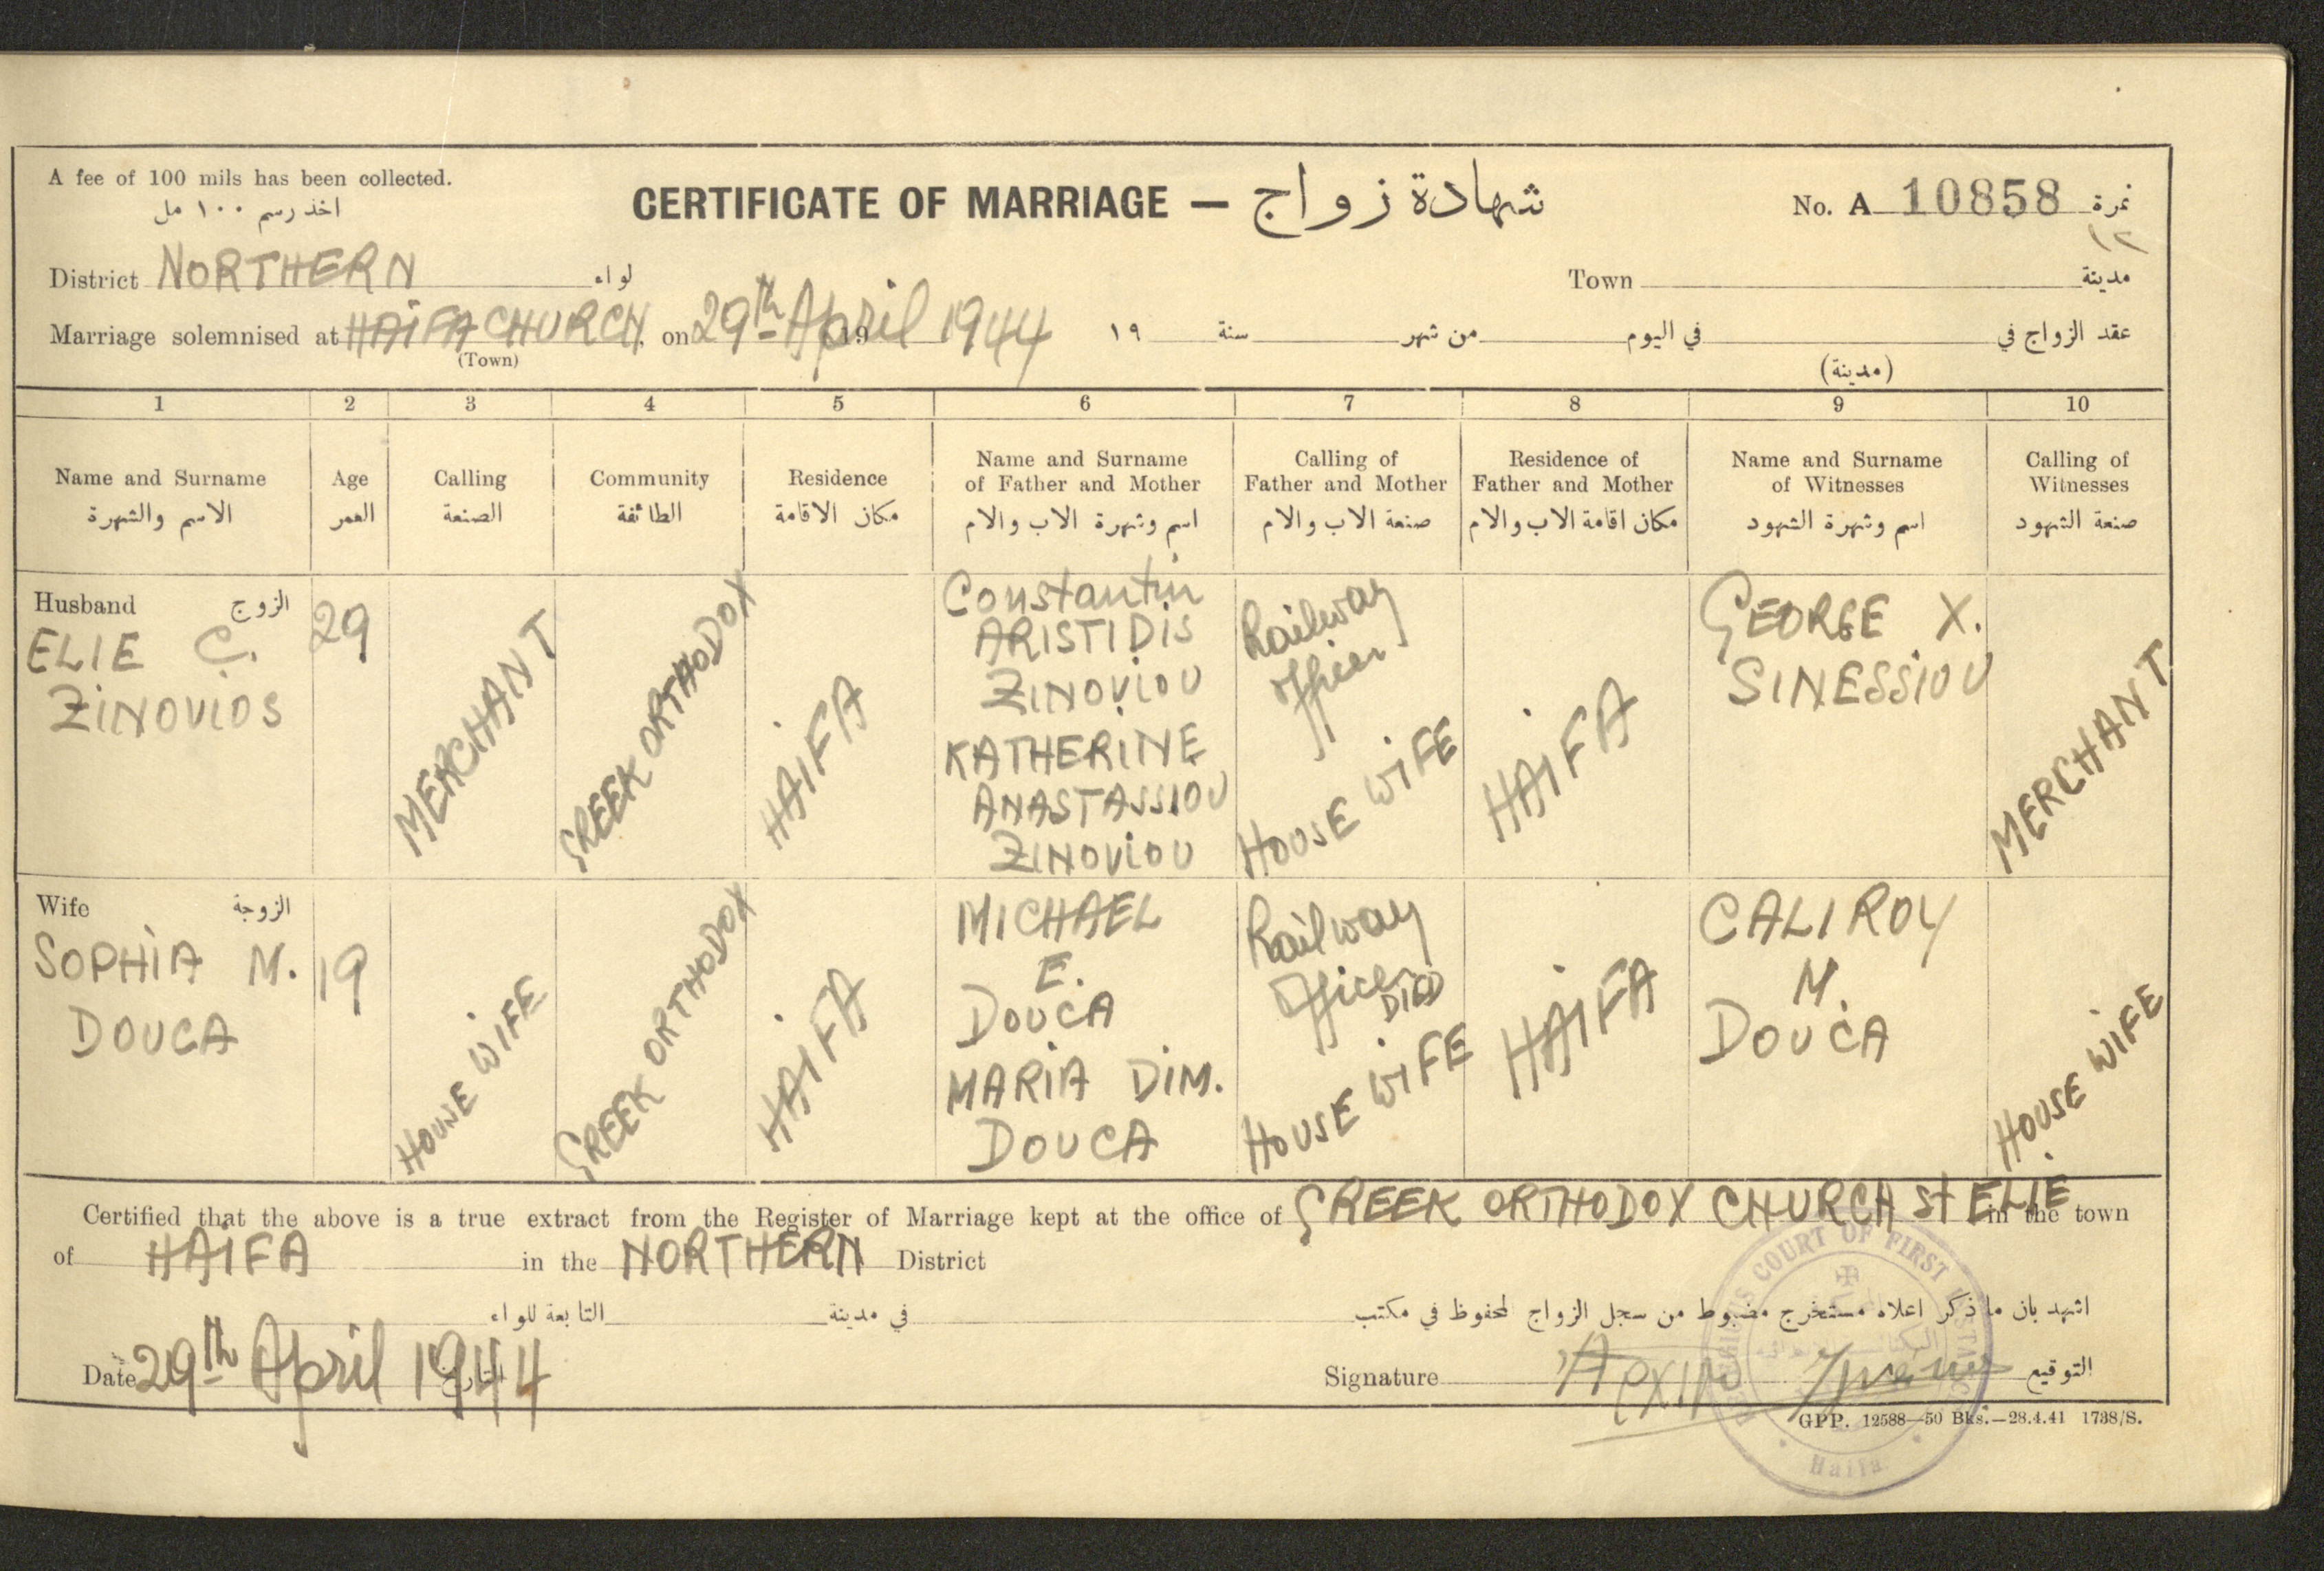 A fee of 100 mils has been collected.
اخذ رسم ١٠٠ مل
CERTIFICATE OF MARRIAGE — شهادة زواج
No. A 10858 نمرة
١٢
District NORTHERN لواء
Town مدينة
Marriage solemnised at HAIFA CHURCH, on 29th April 1944 19
(Town)
عقد الزواج في في اليوم من شهر سنة ١٩
(مدينة)
1 2 3 4 5 6 7 8 9 10
Name and Surname
الاسم والشهرة
Age
العمر
Calling
الصنعة
Community
الطائفة
Residence
مكان الاقامة
Name and Surname
of Father and Mother
اسم وشهرة الاب والام
Calling of
Father and Mother
صنعة الاب والام
Residence of
Father and Mother
مكان اقامة الاب والام
Name and Surname
of Witnesses
اسم وشهرة الشهود
Calling of
Witnesses
صنعة الشهود
Husband الزوج
ELIE C.
ZINOVIOS
29
MERCHANT
GREEK ORTHODOX
HAIFA
Constantin
ARISTIDIS
ZINOVIOU
KATHERINE
ANASTASSIOU
ZINOVIOU
Railway
Officer
HOUSE WIFE
HAIFA
GEORGE X.
SINESSIOU
MERCHANT
Wife الزوجة
SOPHIA M.
DOUCA
19
HOUSE WIFE
GREEK ORTHODOX
HAIFA
MICHAEL
E.
DOUCA
MARIA DIM.
DOUCA
Railway
Officer
DIED
HOUSE WIFE
HAIFA
CALIROY
M.
DOUCA
HOUSE WIFE
Certified that the above is a true extract from the Register of Marriage kept at the office of GREEK ORTHODOX CHURCH St ELIE in the town
of HAIFA in the NORTHERN District
اشهد بان ما ذكر اعلاه مستخرج مضبوط من سجل الزواج المحفوظ في مكتب
في مدينة التابعة للواء
Date 29th April 1944 التاريخ
Signature التوقيع
COURT OF FIRST
Haifa
GPP. 12588—50 Bks.—28.4.41 1738/S.